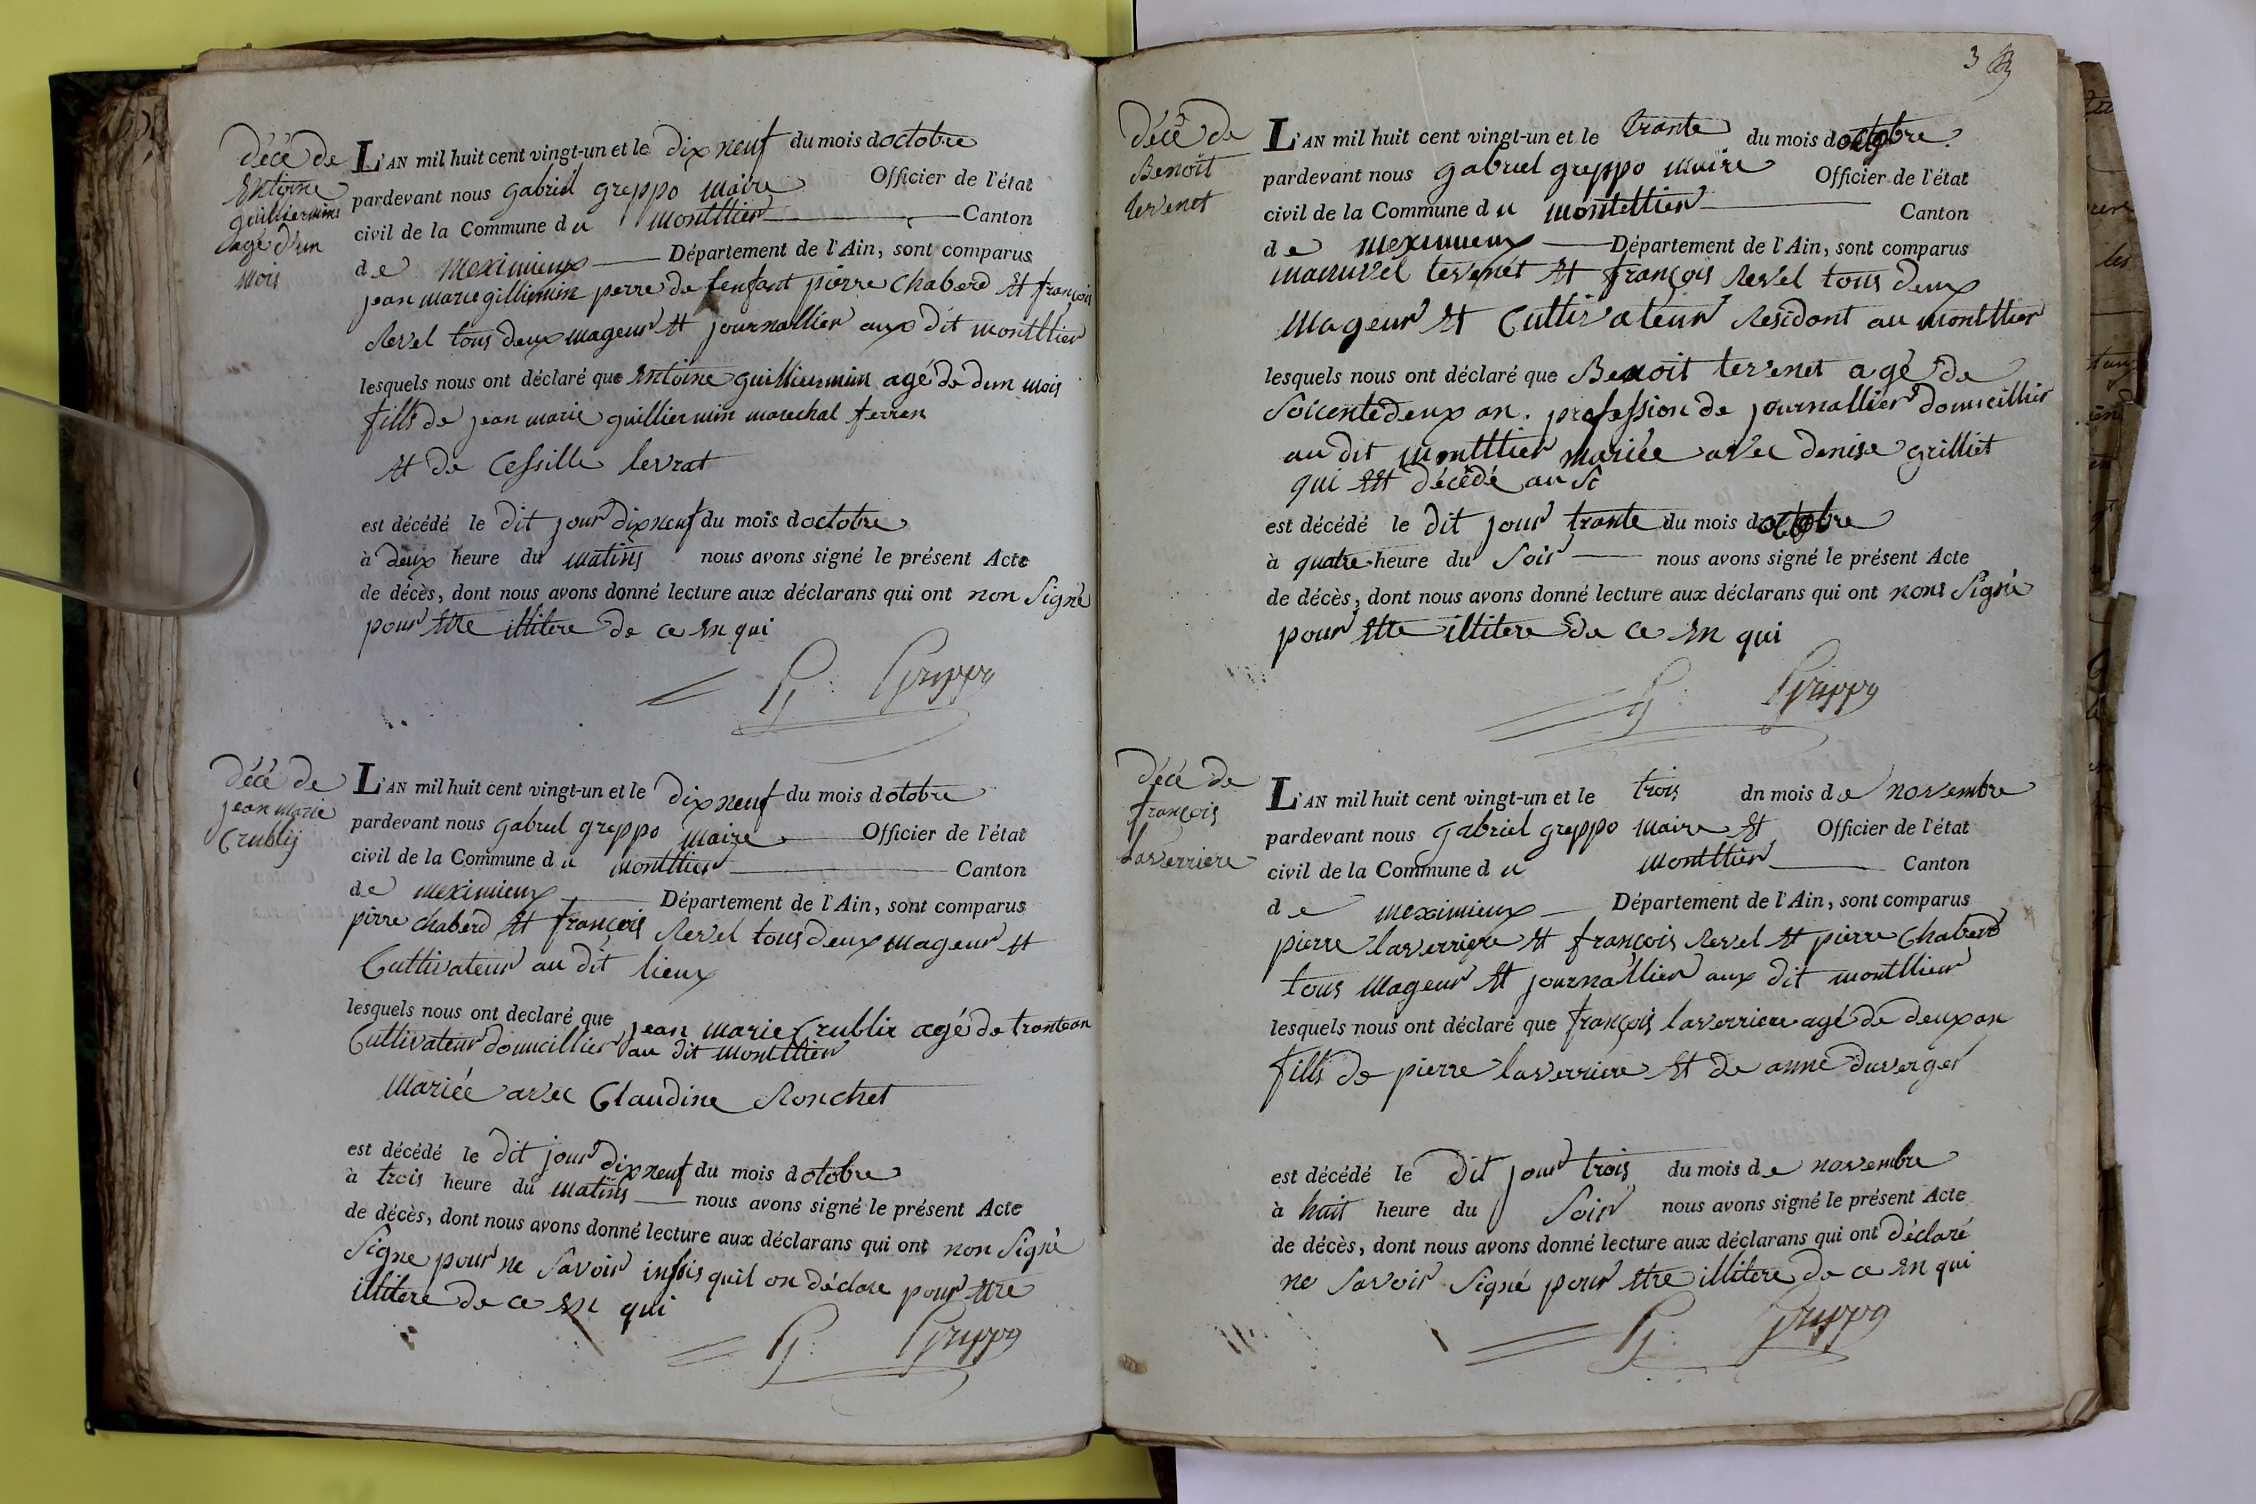 décè de
Entoine
guilliermins
agé d'un
mois
L'AN mil huit cent vingt-un et le dix neuf du mois doctobre
pardevant nous gabriel greppo maire Officier de l'état
civil de la Commune d u montllier Canton
de meximieux Département de l'Ain, sont comparus
jean marie gilliemin perre de lenfant pierre Chaberd Et françois
Revel tous deux mageur Et journallier aux dit montllier
lesquels nous ont déclaré que Entoine guilliermin agé de dun mois
fills de jean marie guilliermin marechal ferren
Et de Cessille levrat
est décédé le dit jour dix neuf du mois doctobre
à deux heure du matins nous avons signé le présent Acte
de décès, dont nous avons donné lecture aux déclarans qui ont non Signé
pour Etre illitere de ce En qui
G: Greppo
décè de
jean marie
Crublij
L'AN mil huit cent vingt-un et le dix neuf du mois dotobre
pardevant nous gabriel greppo maire Officier de l'état
civil de la Commune d u montllier Canton
de meximieux Département de l'Ain, sont comparus
pirre chaberd Et françois Revel tous deux mageur Et
Cultivateur au dit lieux
lesquels nous ont declaré que jean marie Crublix agé de tronteon
Cultivateur domicillier au dit montllier
Mariée avec Claudine Ronchet
est décédé le dit jour dix neuf du mois dotobre
à trois heure du matins nous avons signé le présent Acte
de décès, dont nous avons donné lecture aux déclarans qui ont non Signé
Signe pour ne Savoir insis quil on déclare pour Etre
illitere de ce En qui
G: Greppo
3
décè de
Benoit
tevenet
L'AN mil huit cent vingt-un et le tronte du mois doctobre.
pardevant nous gabriel greppo maire Officier de l'état
civil de la Commune d u montellier Canton
de meximieux Département de l'Ain, sont comparus
manuvel tevenet Et françois Revel tous deux
Mageur Et Cultivateur Residont au montllier
lesquels nous ont déclaré que Benoit tevenet agé de
Soicentedeux an. profession de journallier domicillier
au dit montllier mariée avec denise grilliet
qui Est décédé au Sc
est décédé le dit jour tronte du mois doctobre
à quatre heure du Soir nous avons signé le présent Acte
de décès, dont nous avons donné lecture aux déclarans qui ont nons Signé
pour Etre illitere de ce En qui
G: Greppo
décè de
françois
laverriere
L'AN mil huit cent vingt-un et le trois dn mois de novembre
pardevant nous gabriel greppo maire Et Officier de l'état
civil de la Commune d u montllier Canton
de meximieux Département de l'Ain, sont comparus
pierre laverriere Et françois Revel Et pierre Chaberd
tous Mageur Et journallier aux dit montllier
lesquels nous ont déclaré que françois laverriere agé de deux an
fills de pierre laverriere Et de anne duverger
est décédé le dit jour trois du mois de novembre
à huit heure du Soir nous avons signé le présent Acte
de décès, dont nous avons donné lecture aux déclarans qui ont déclaré
ne Savoir Signé pour Etre illitere de ce En qui
G: Greppo